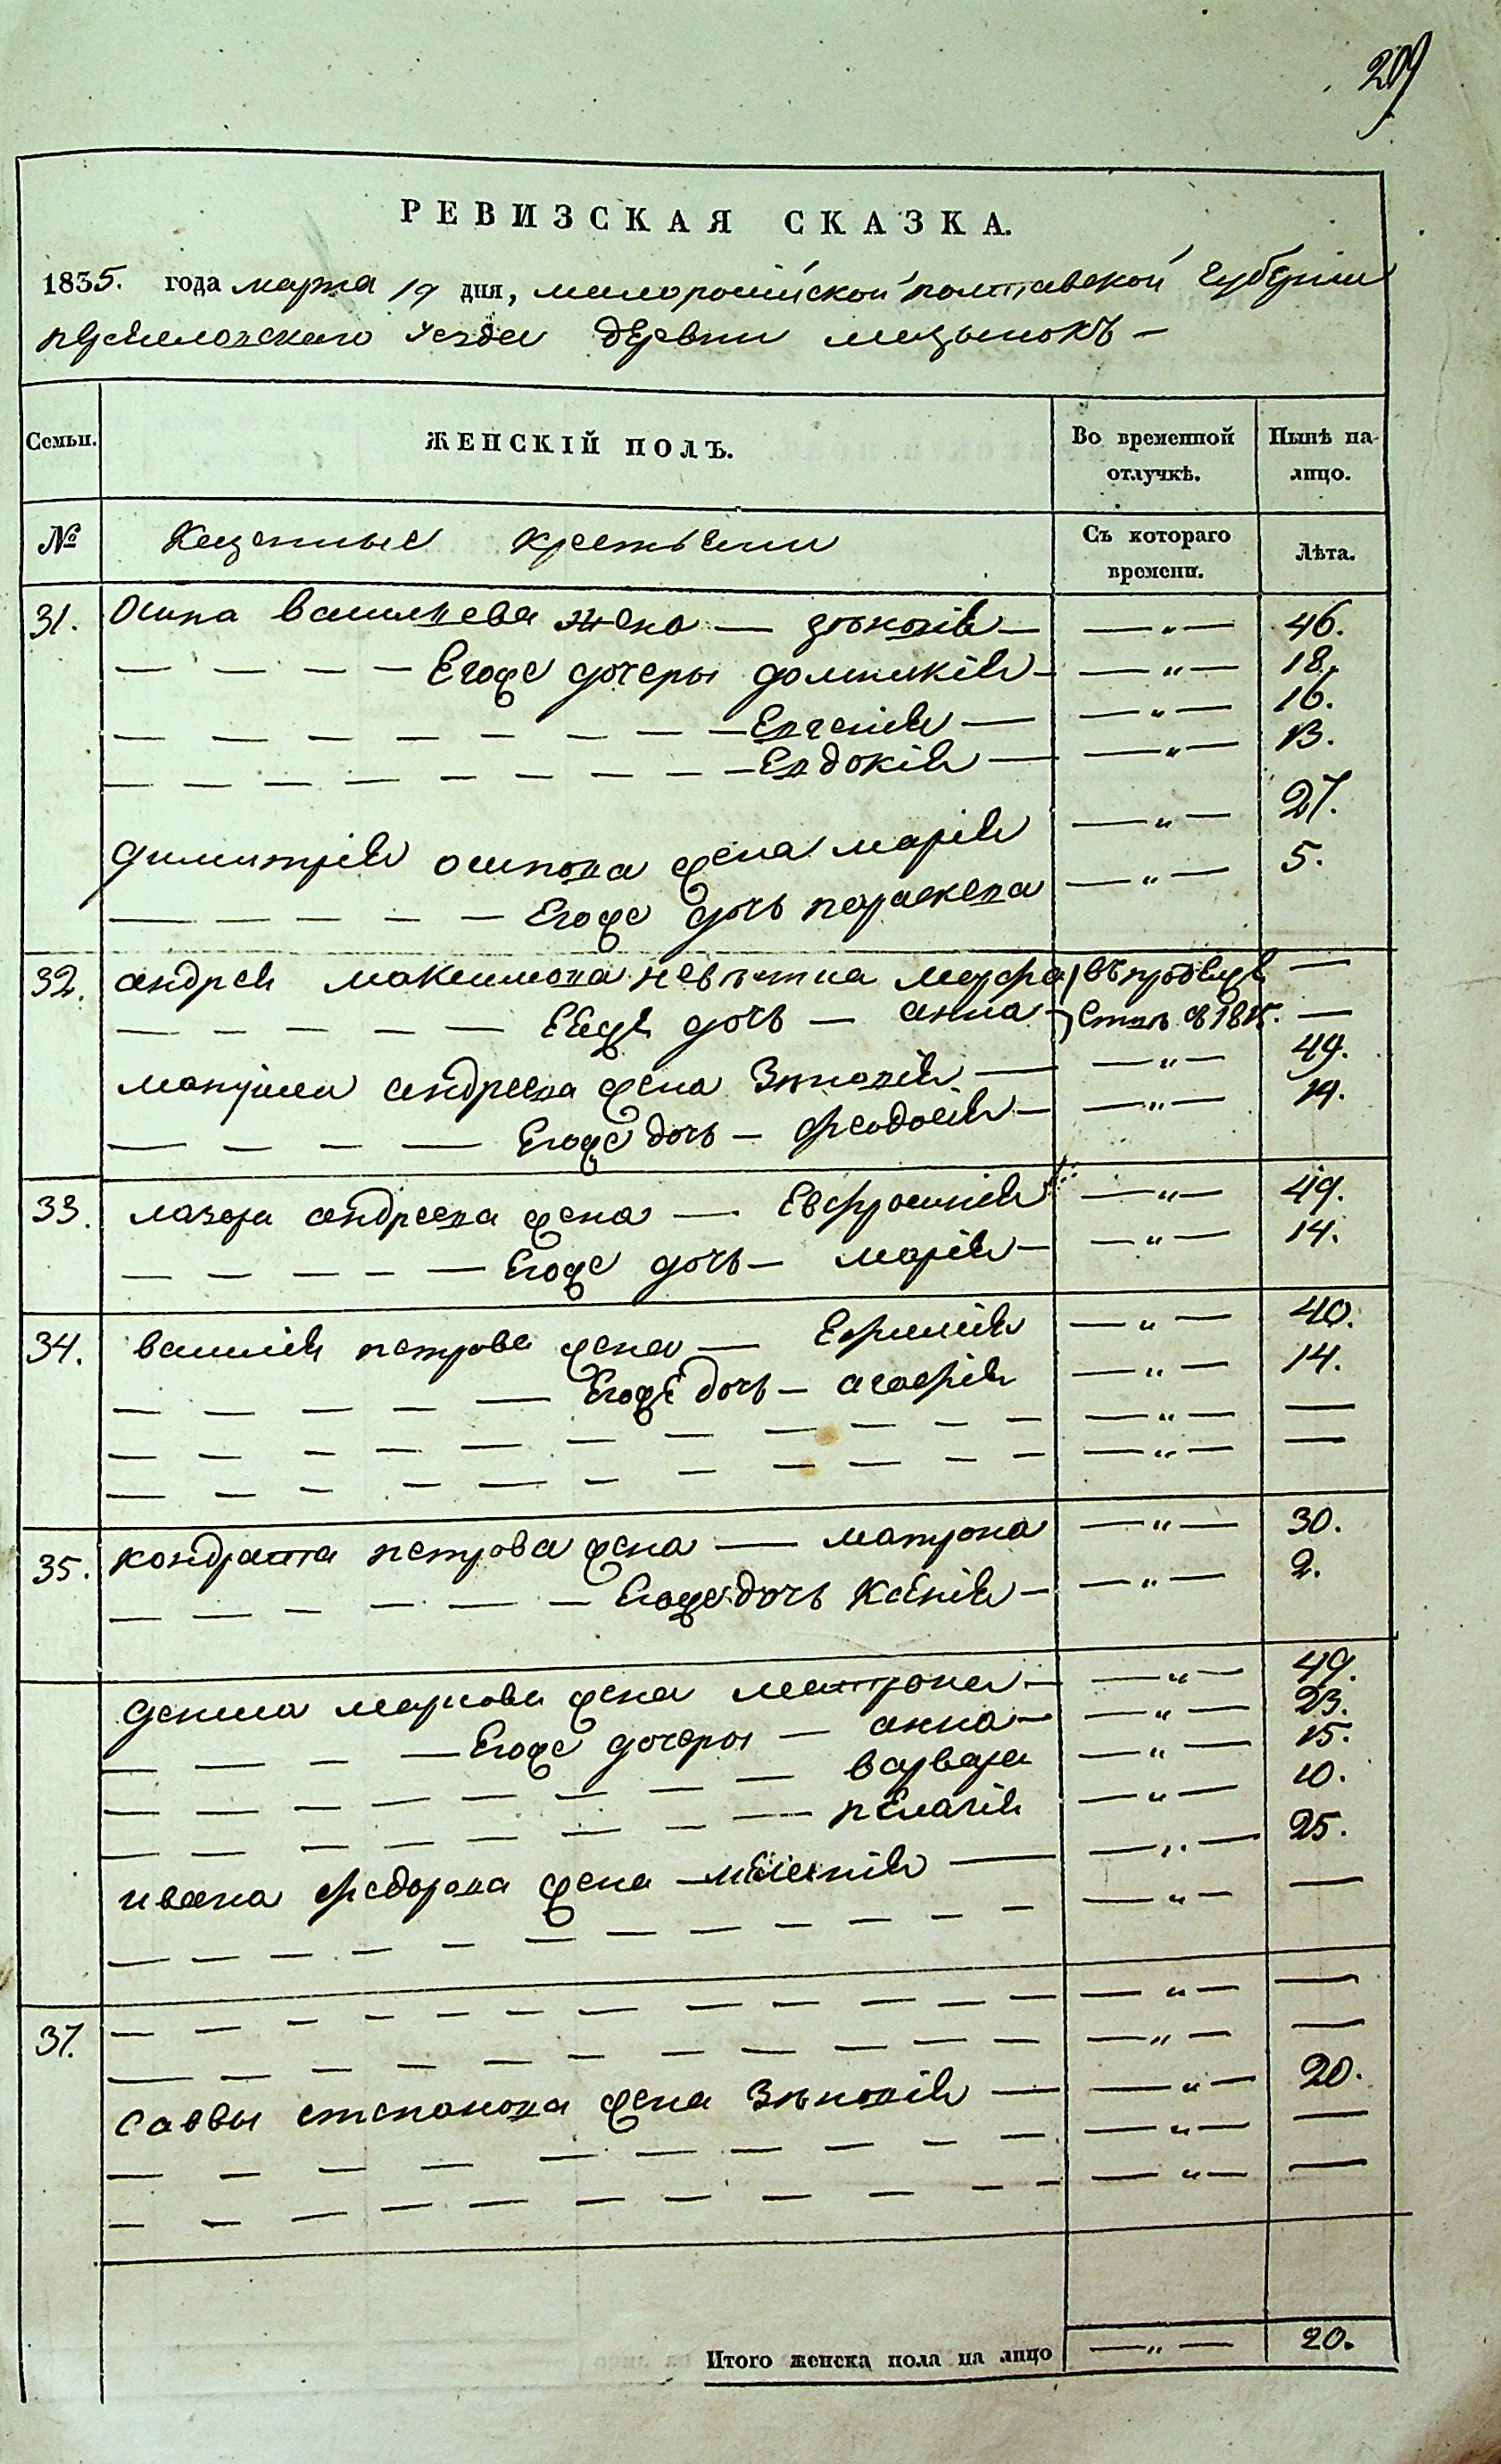 209
РЕВИЗСКАЯ СКАЗКА.
1835. года марта 19 дня, малоросійской полтавской губерніи
уезда деревни
Семьи.
ЖЕНСКІЙ ПОЛЪ.
Во временной отлучкѣ.
Нынѣ на-лицо.
№
Казенные крестьяни
Съ котораго времени.
Лѣта.
31. Осипа василиева жена — зѣновія — — „ — 46.
— — — — Егоже дочеры домникія — — „ — 18.
— — — — — — — — Евгенія — — „ — 16.
— — — — — — — — Евдокія — — „ — 13.
димитрія осипова жена марія — „ — 27.
— — — — — Егоже дочь параскева — „ — 5.
32. андрея максимова невѣстка марфа —
— — — — — Ееже дочь — анна —
андреева жена Зѣновія — — „ — 49.
— — — — Егоже дочь — феодосія — — „ — 19.
33. лазаря андреева жена — Евфросинія — „ — 49.
— — — — — Егоже дочь — марія — — „ — 14.
34. василія петрова жена — Ефимія — „ — 40.
— — — — — Егоже дочь — агафія — „ — 14.
— — — — — — — — — — — — „ — —
— — — — — — — — — — — — „ — —
35. кондрата петрова жена — матрона — „ — 30.
— — — — — — Егоже дочь Ксенія — — „ — 2.
дениса маркова жена матрона — — „ — 49.
— — — — Егоже дочеры — анна — — „ — 23.
— — — — — — — — варвара — „ — 15.
— — — — — — — — пелагія — „ — 10.
ивана федорова жена — меланія — — „ — 25.
— — — — — — — — — — — — „ — —
37. — — — — — — — — — — — — „ — —
— — — — — — — — — — — — „ — —
саввы степанова жена Зѣновія — — „ — 20.
— — — — — — — — — — — — „ — —
— — — — — — — — — — — — „ — —
Итого женска пола на лицо — „ — 20.